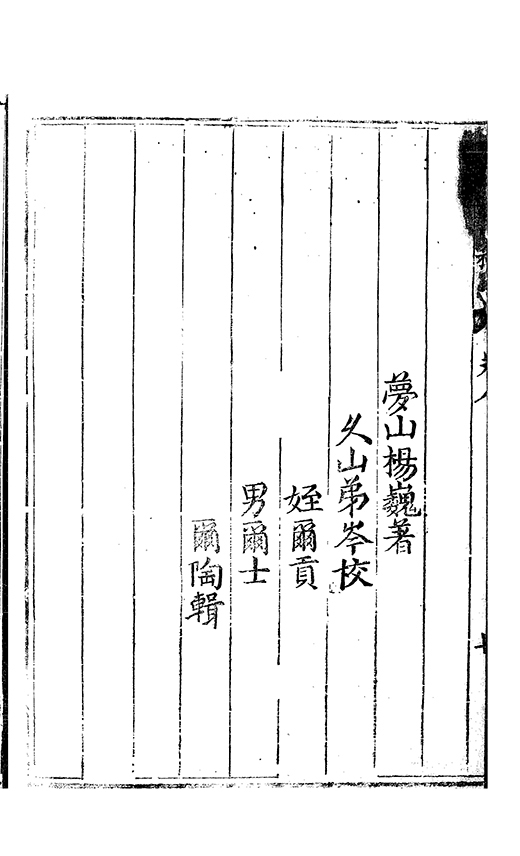 夢山楊巍著
乆山弟岑校
姪爾貢
男爾士
爾陶輯